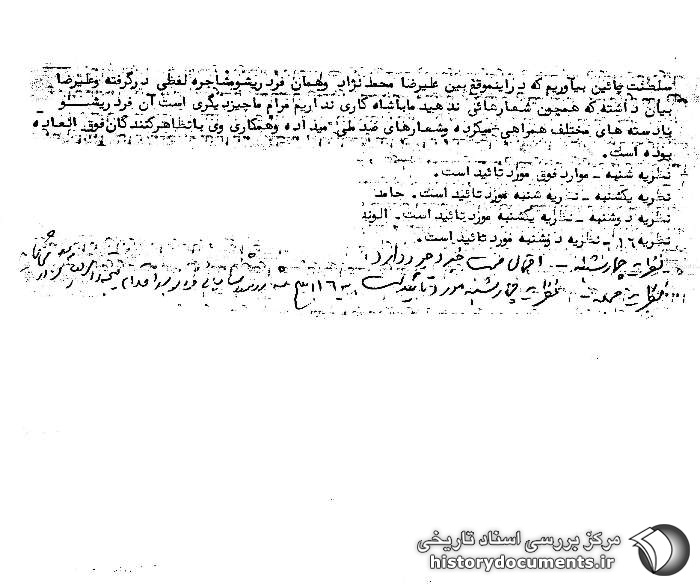 سلطنت پائین بیاوریم که در اینموقع بین علیرضا محمد نژاد و همان فرد ریشو مشاجره لفظی درگرفته و علیرضا
بیان داشته که همچون شعارهائی ندهید ما با شاه کاری نداریم مرام ما چیز دیگری است آن فرد ریشو
با دسته های مختلف همراهی میکرده و شعارهای ضد ملی میداده و همکاری وی با تظاهرکنندگان فوق العاده
بوده است.
نظریه شنبه - موارد فوق مورد تائید است.
نظریه یکشنبه - نظریه شنبه مورد تائید است. حامد
نظریه دوشنبه - نظریه یکشنبه مورد تائید است. الوند
نظریه ۱۶ - نظریه دوشنبه مورد تائید است.
نظریه چهارشنبه - احتمال صحت خبر وجود دارد.
نظریه جمعه - نظریه چهارشنبه مورد تائید است
مرکز بررسی اسناد تاریخی
historydocuments.ir